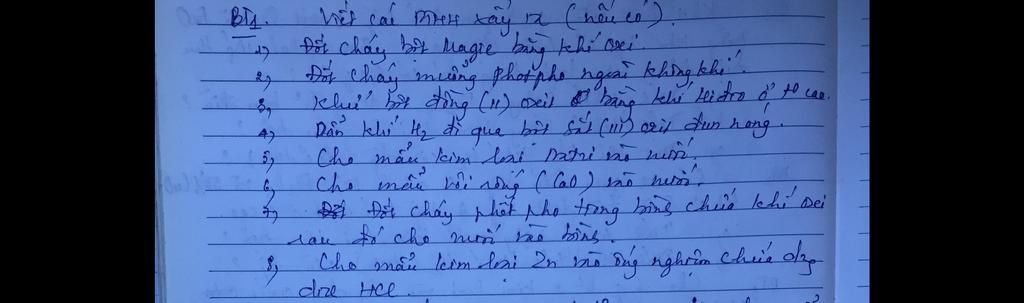 BT1. Viết các PTHH xảy ra (nếu có).
1) Đốt cháy bột Magie bằng khí oxi.
2) Đốt cháy muỗng photpho ngoài không khí.
3) Khử bột đồng (II) oxit bằng khí Hiđro ở t° cao.
4) Dẫn khí H2 đi qua bột sắt (III) oxit đun nóng.
5) Cho mẩu kim loại Natri vào nước.
6) Cho mẩu vôi sống (CaO) vào nước.
7) Đốt cháy phốt pho trong bình chứa khí oxi
sau đó cho nước vào bình.
8) Cho mẩu kim loại Zn vào ống nghiệm chứa dung
dịch HCl.